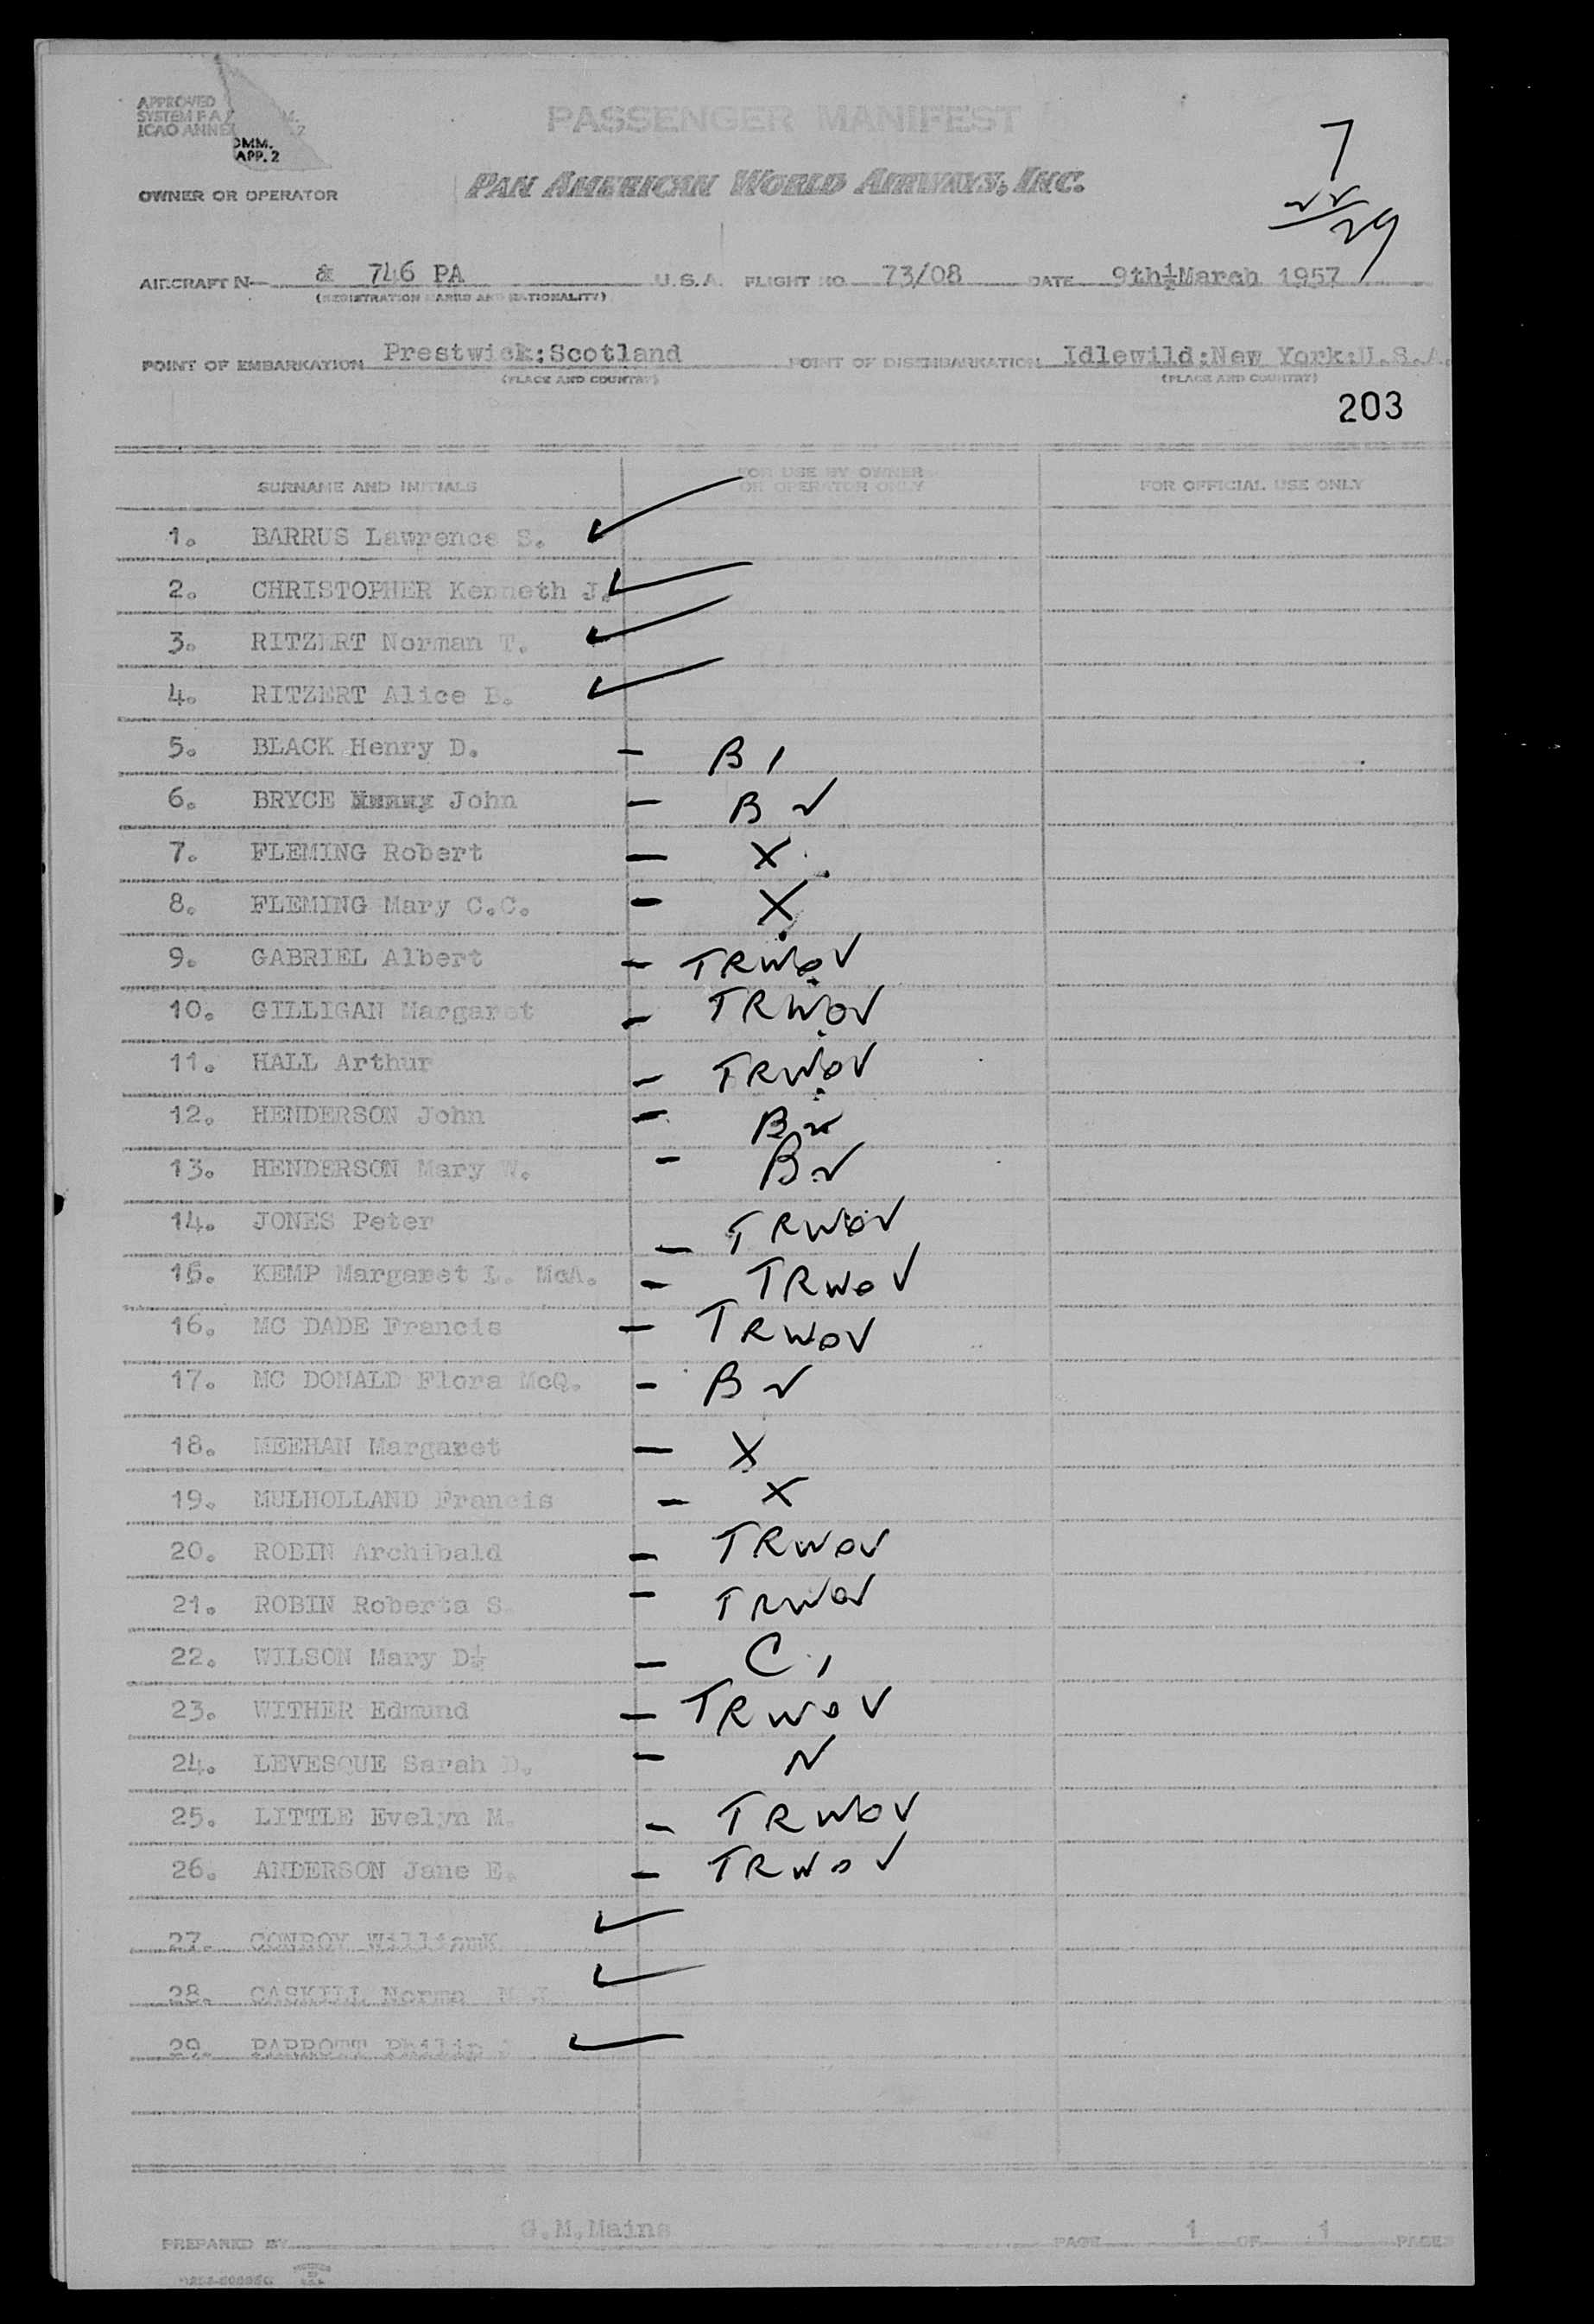 APPROVED
SYSTEM F A M.
ICAO ANNEX 2
OMM.
APP. 2
PASSENGER MANIFEST
PAN AMERICAN WORLD AIRWAYS, INC.
OWNER OR OPERATOR
7
22
29
AIRCRAFT N— & 746 PA U.S.A. FLIGHT NO. 73/08 DATE 9th½March 1957
(REGISTRATION MARKS AND NATIONALITY)
POINT OF EMBARKATION Prestwick:Scotland POINT OF DISEMBARKATION Idlewild:New York:U.S.A.
(PLACE AND COUNTRY) (PLACE AND COUNTRY)
203
SURNAME AND INITIALS FOR USE BY OWNER OR OPERATOR ONLY FOR OFFICIAL USE ONLY
1. BARRUS Lawrence S. ✓
2. CHRISTOPHER Kenneth J. ✓
3. RITZERT Norman T. ✓
4. RITZERT Alice B. ✓
5. BLACK Henry D. – B 1
6. BRYCE John – B 2
7. FLEMING Robert – X
8. FLEMING Mary C.C. – X
9. GABRIEL Albert – TRWOV
10. GILLIGAN Margaret – TRWOV
11. HALL Arthur – TRWOV
12. HENDERSON John – B 2
13. HENDERSON Mary W. – B 2
14. JONES Peter – TRWOV
15. KEMP Margaret L. McA. – TRWOV
16. MC DADE Francis – TRWOV
17. MC DONALD Flora McQ. – B 2
18. MEEHAN Margaret – X
19. MULHOLLAND Francis – X
20. ROBIN Archibald – TRWOV
21. ROBIN Roberta S. – TRWOV
22. WILSON Mary D½ – C 1
23. WITHER Edmund – TRWOV
24. LEVESQUE Sarah D. – N
25. LITTLE Evelyn M. – TRWOV
26. ANDERSON Jane E. – TRWOV
27. CONROY WilliamK ✓
28. CASKILL Norma ✓
29. PARROTT Philip ✓
PREPARED BY G.M.Mains PAGE 1 OF 1 PAGES